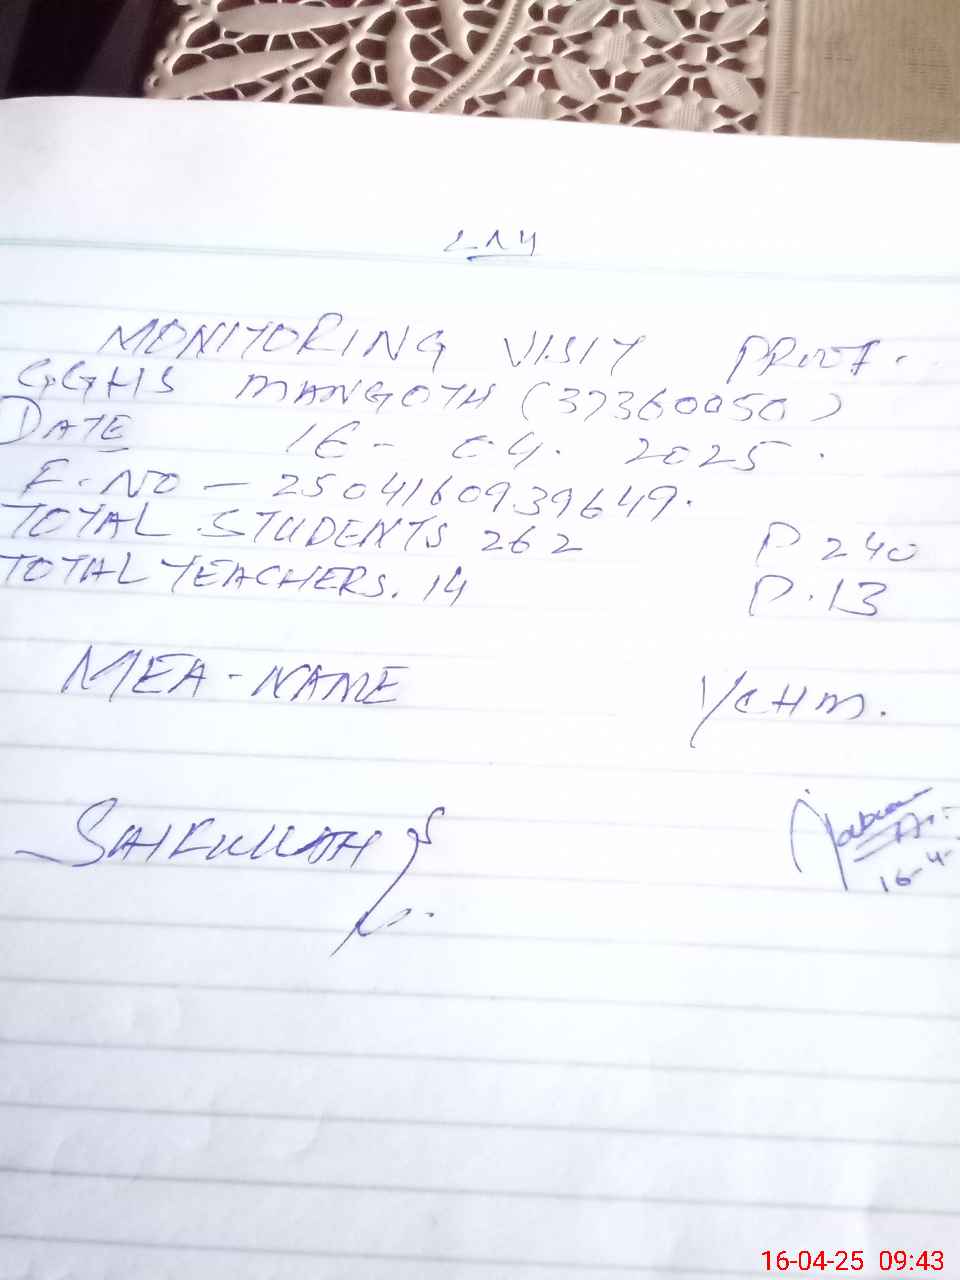 MONITORING VISIT PROOF.
GGHS MANGOTH (37360050)
DATE 16-04.2025.
E.NO - 250416093964 9.
TOTAL STUDENTS 262 P 240
TOTAL TEACHERS. 14 P.13
MEA-NAME
16-4-
16-04-25 09:43